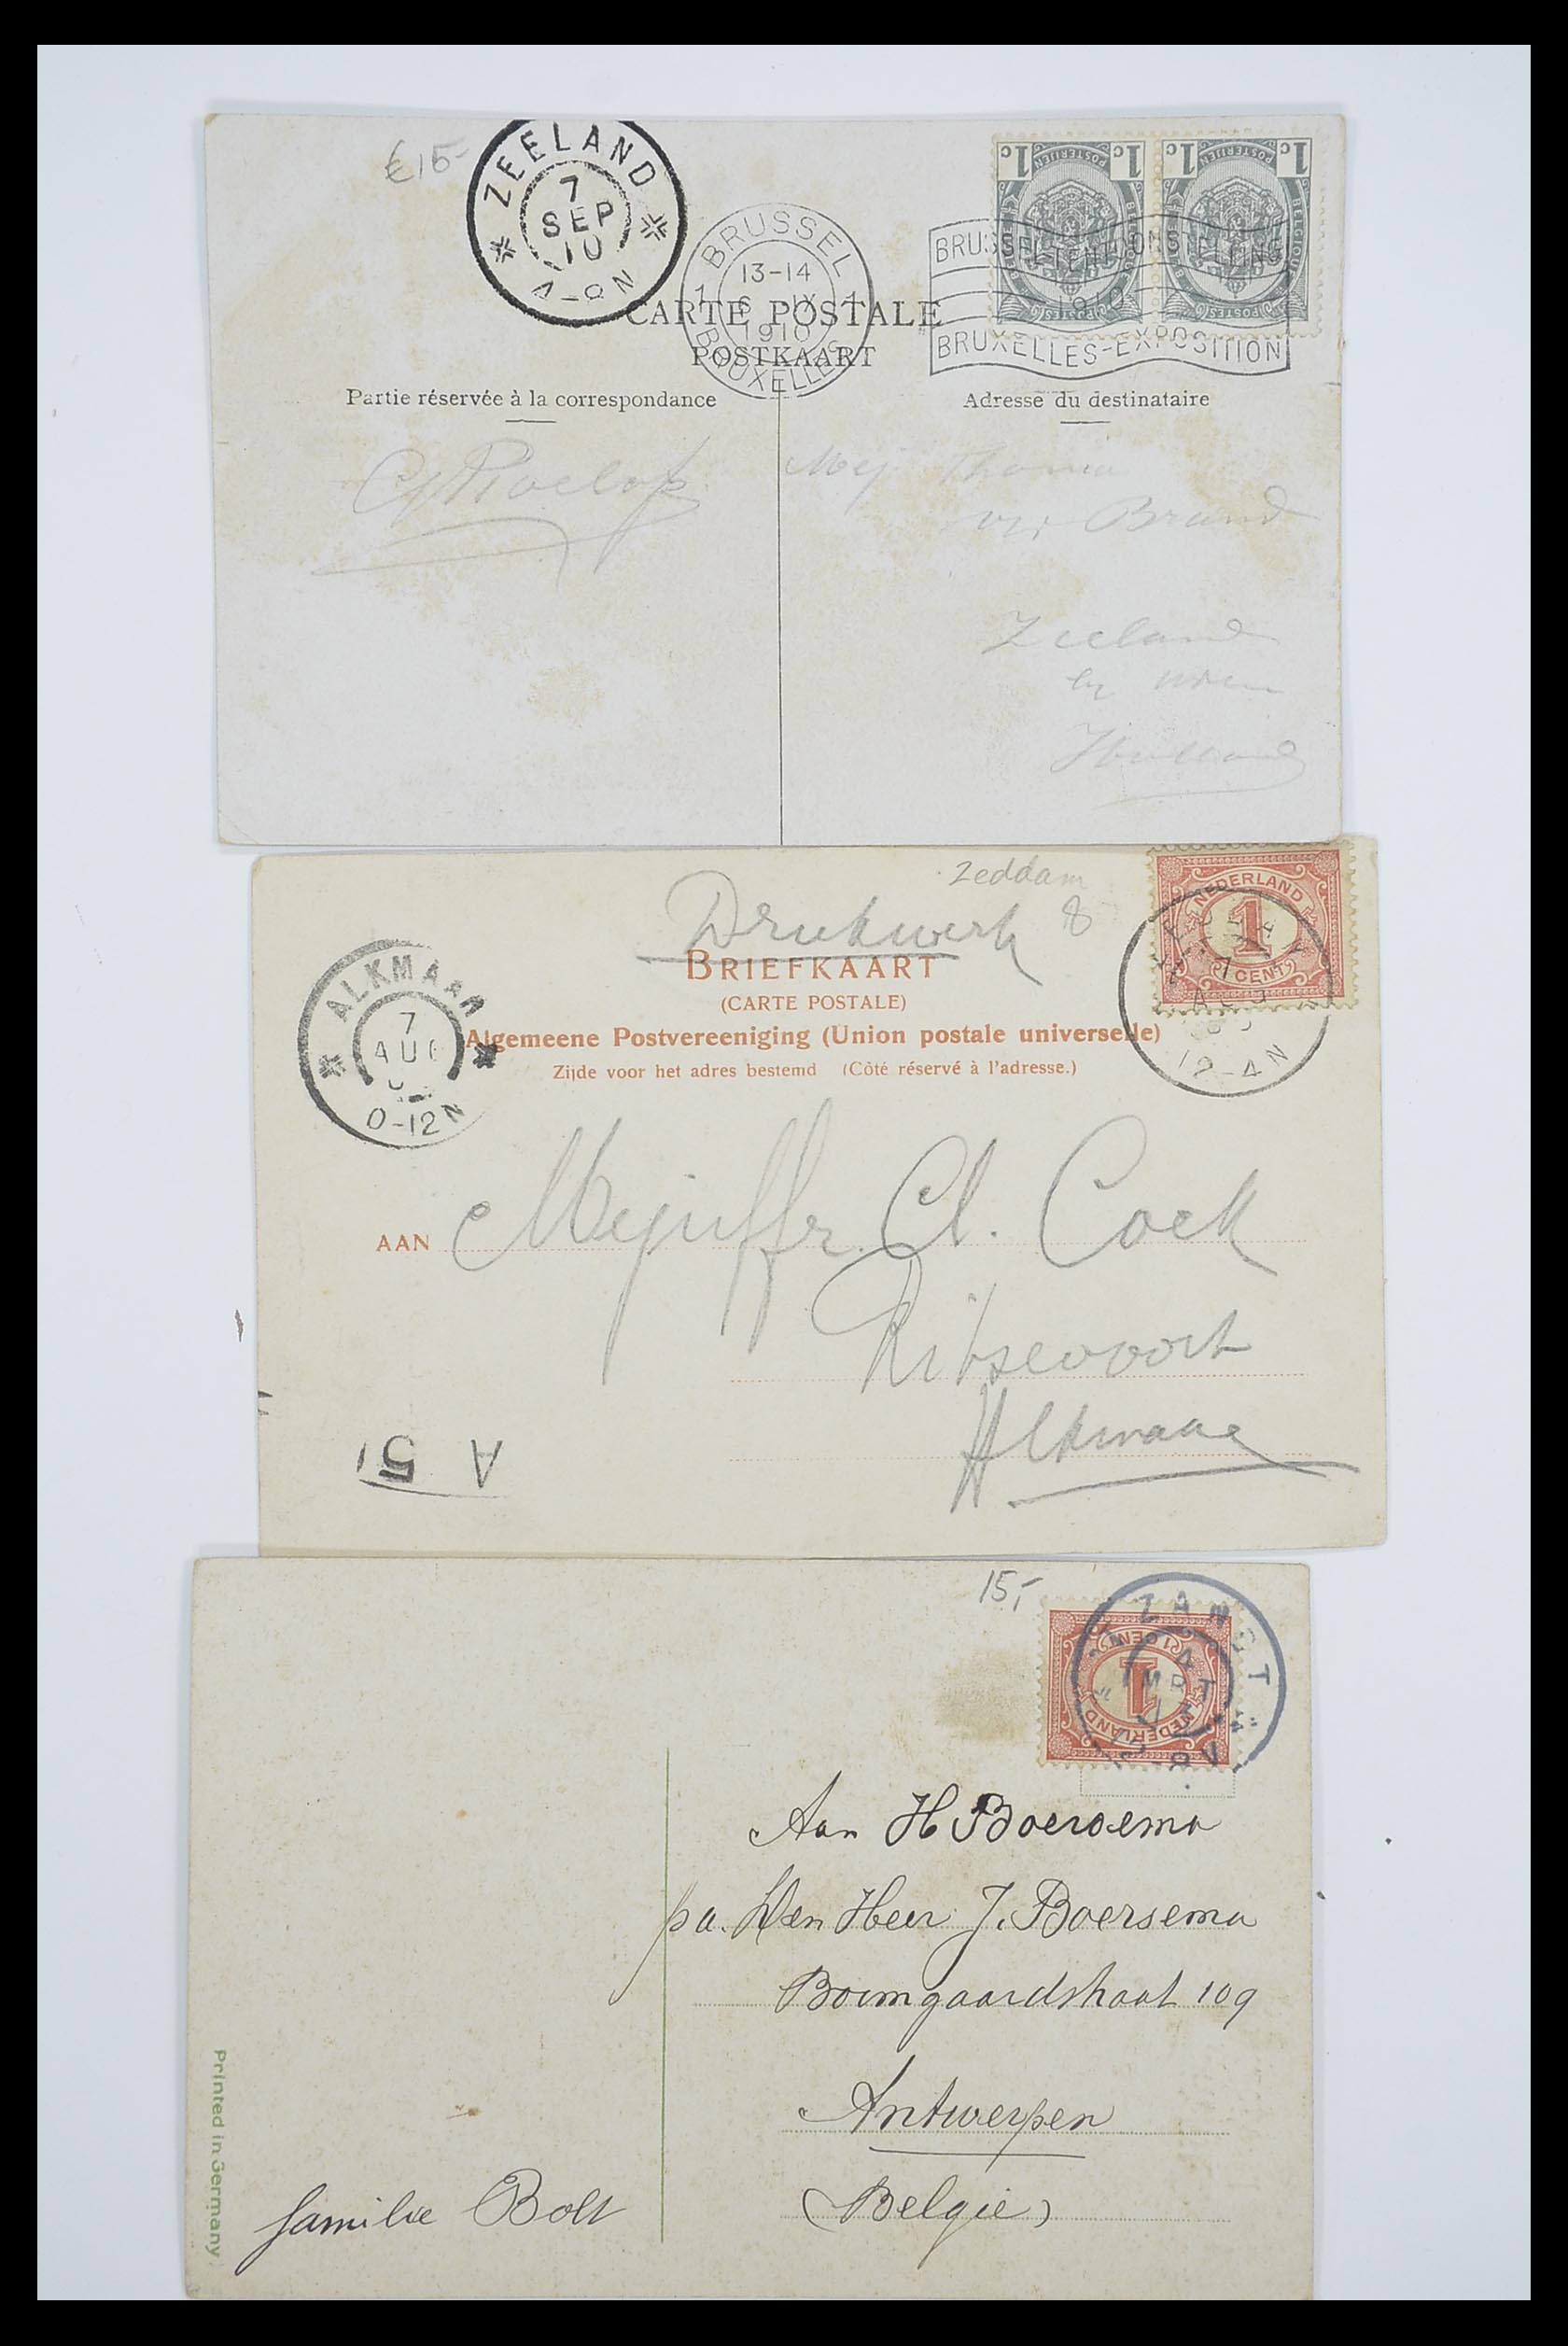 €15-
ZEELAND
7
SEP
10
BRUSSEL
13-14
1910
BRUXELLES
1c 1c 1c 1c
POSTERIJEN POSTERIJEN
BELGIQUE
BRUSSEL-TENTOONSTELLING
1910
BRUXELLES-EXPOSITION
CARTE POSTALE
POSTKAART
Partie réservée à la correspondance
Adresse du destinataire
Mej
Brand
Zeeland
Holland
Zeddam
8
Drukwerk
BRIEFKAART
(CARTE POSTALE)
Algemeene Postvereeniging (Union postale universelle)
Zijde voor het adres bestemd (Côté réservé à l'adresse.)
ALKMAAR
7
AUG
0-12N
NEDERLAND
1
1 CENT
7
AUG
12-4N
AAN Mejuffr. Cl. Cock
Ritsevoort
Alkmaar
A 51
15,-
NEDERLAND
1
1 CENT
4
MRT
Aan H Boersema
pa. Den Heer J. Boersema
Boomgaardstraat 109
Antwerpen
(Belgie)
familie Bolt
Printed in Germany